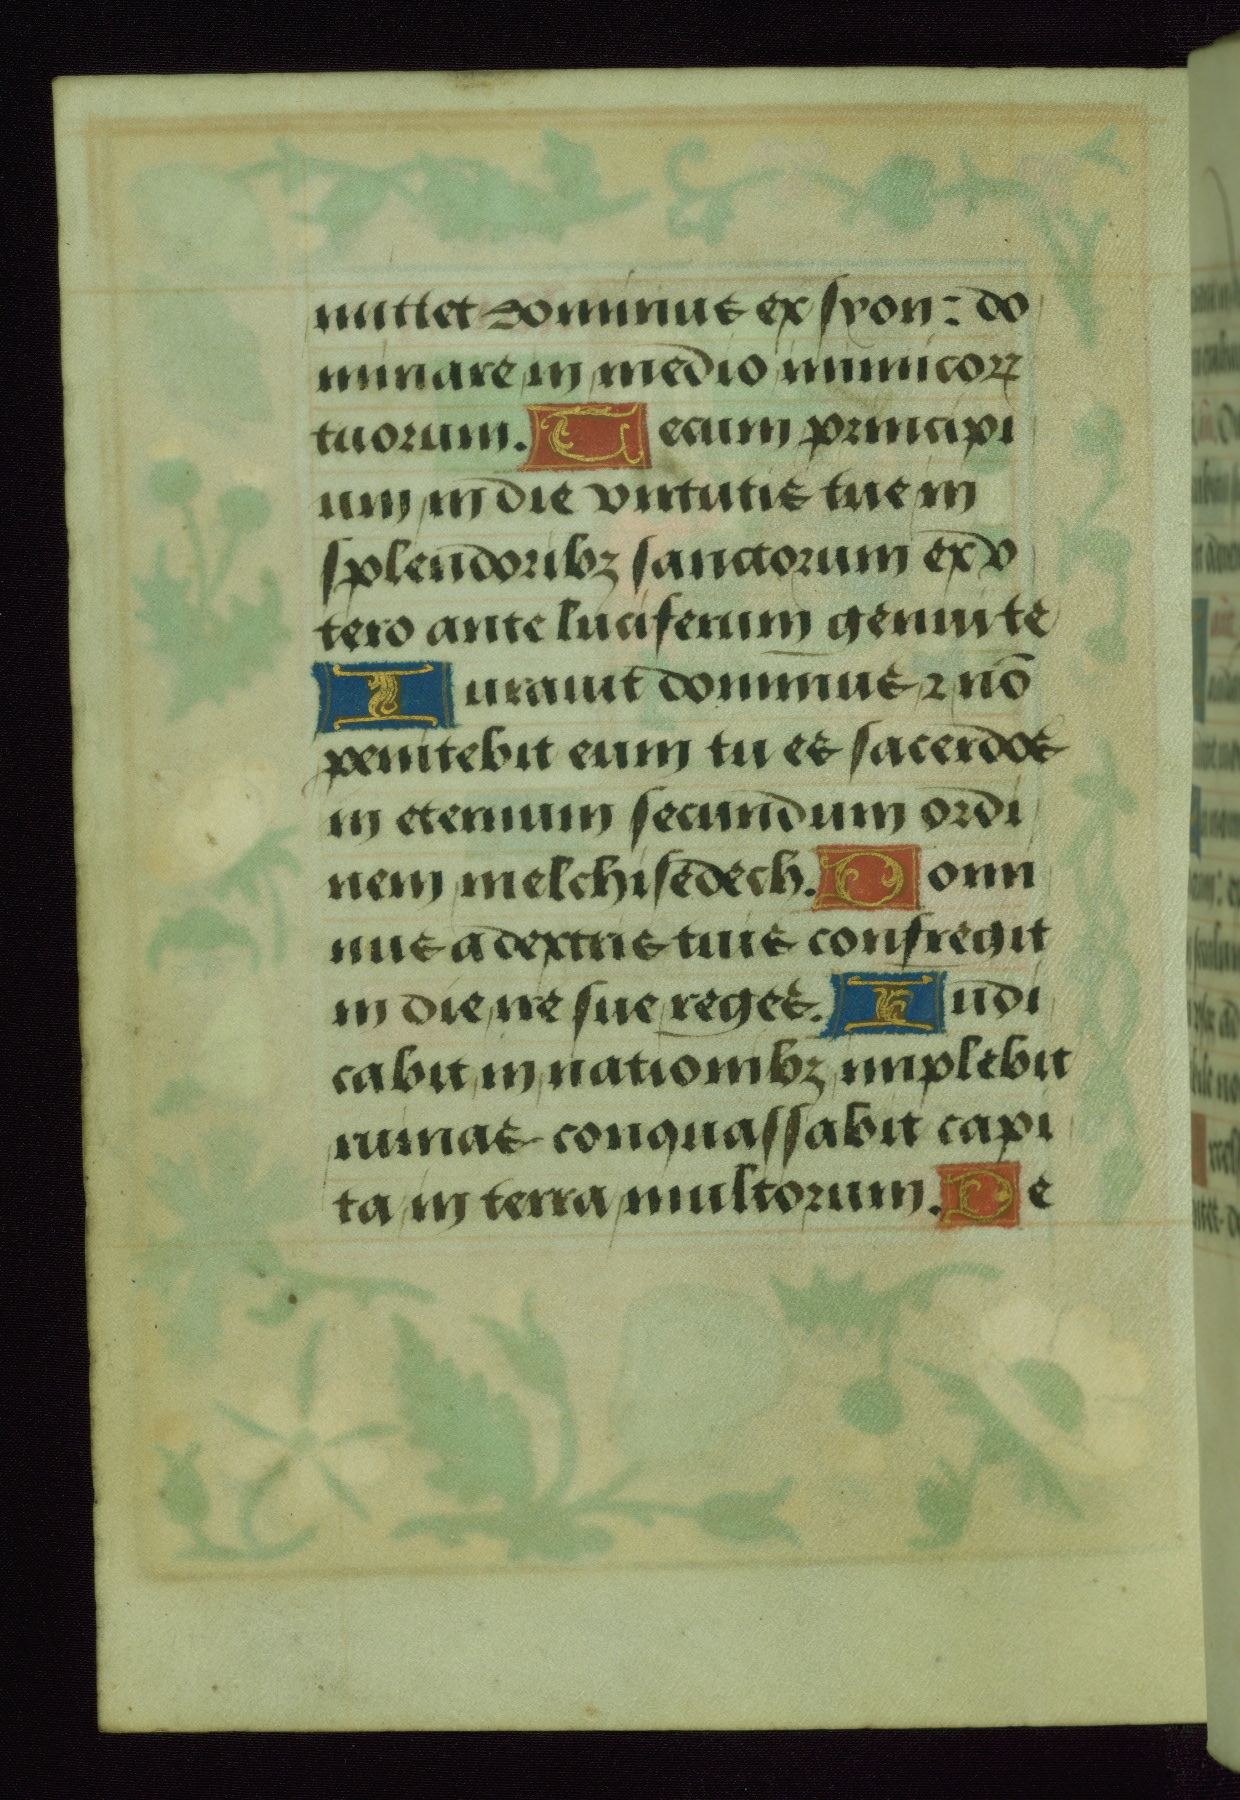 mittet dominus ex syon: do
minare in medio inimicoꝝ
tuorum. Tecum principi
um in die virtutis tue in
splendoribꝫ sanctorum ex v
tero ante luciferum genui te
Iurauit dominus ⁊ nō
penitebit eum tu es sacerdos
in eternum secundum ordi
nem melchisedech. Domi
nus a dextris tuis confregit
in die ire sue reges. Iudi
cabit in nationibꝫ implebit
ruinas conquassabit capi
ta in terra multorum. De